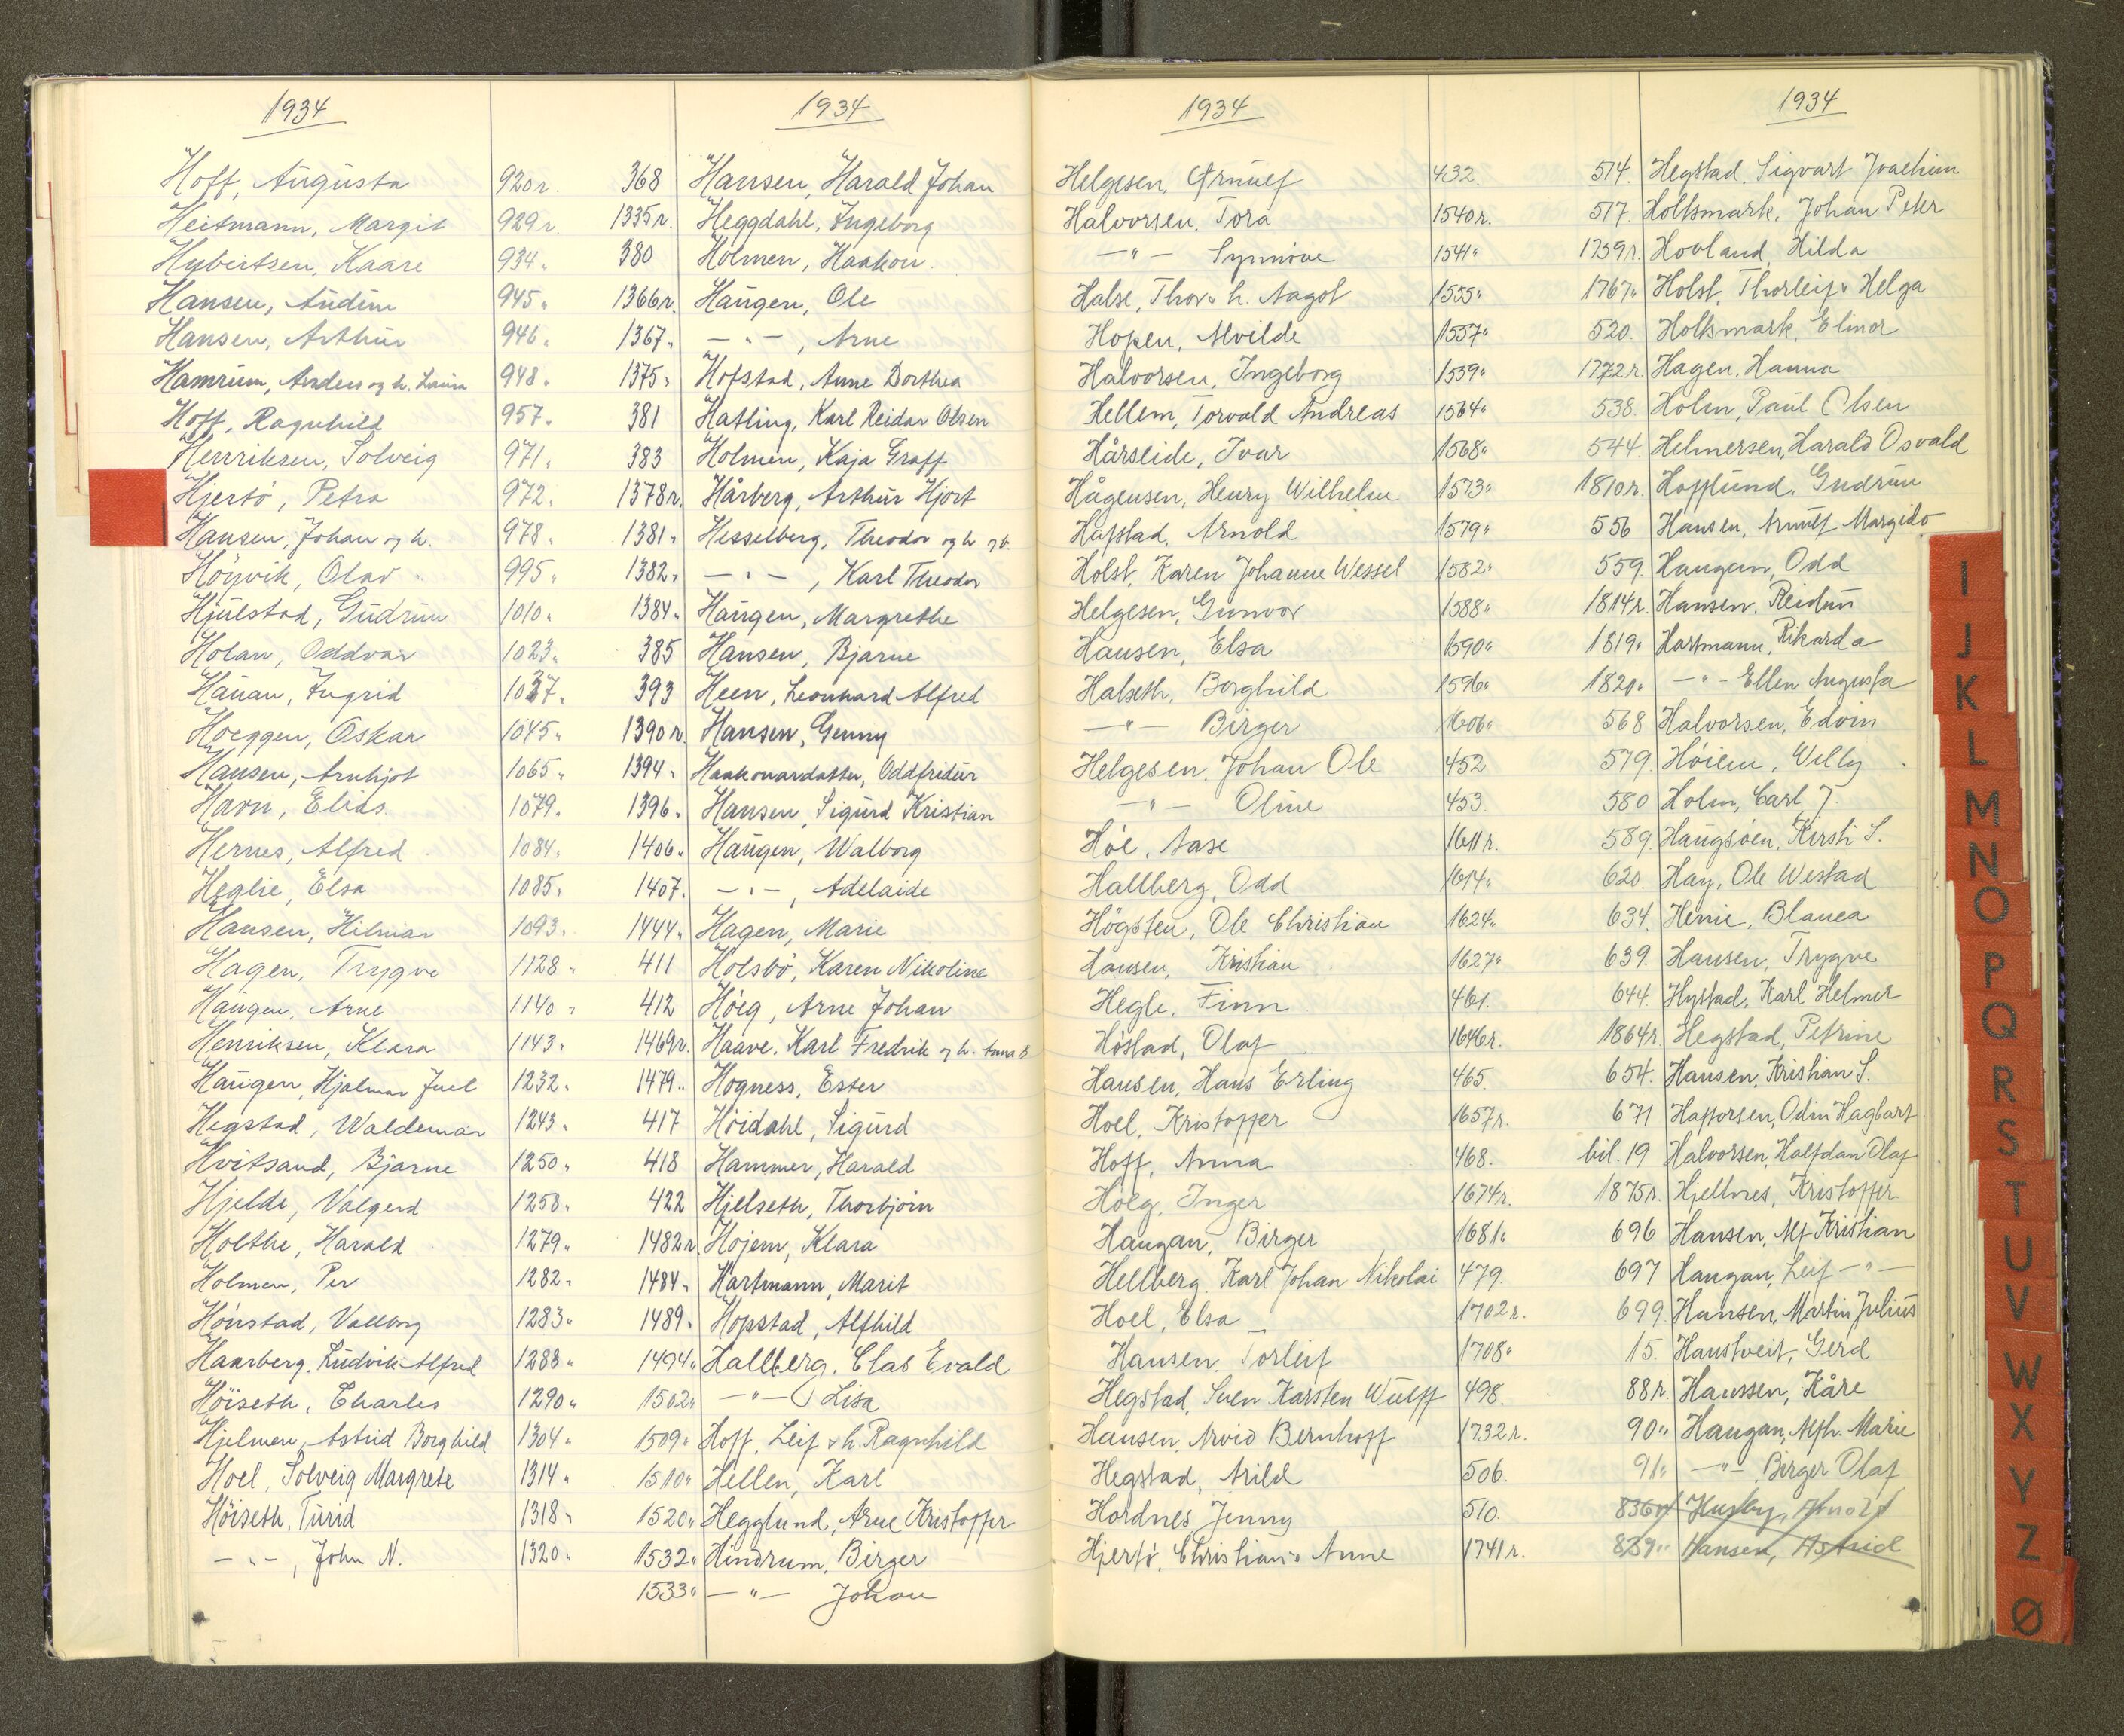 1934
Hoff, Augusta 920 r.
Heitmann, Margit 929 r.
Hybertsen, Kaare 934 "
Hansen, Audun 945 "
Hansen, Arthur 946 "
Hamrum, Anders og h. Laura 948 "
Hoff, Ragnhild 957 "
Henriksen, Solveig 971 "
Hjertö, Petra 972 "
Hansen, Johan og h. 978 "
Höyvik, Olav 995 "
Hjulstad, Gudrun 1010 "
Holan, Oddvar 1023 "
Hauan, Ingrid 1037 "
Hoeggen, Oskar 1045 "
Hansen, Arnhjot 1065 "
Havn, Elias 1079 "
Hernes, Alfred 1084 "
Heglie, Elsa 1085 "
Hansen, Hilmar 1093 "
Hagen, Trygve 1128 "
Haugen, Arne 1140 "
Henriksen, Klara 1143 "
Haugen, Hjalmar Juel 1232 "
Hegstad, Waldemar 1243 "
Hvitsand, Bjarne 1250 "
Hjelde, Valgerd 1258 "
Holthe, Harald 1279 "
Holmen, Per 1282 "
Hönstad, Valborg 1283 "
Haarberg, Ludvik Alfred 1288 "
Höiseth, Charles 1290 "
Hjelmen, Astrid Borghild 1304 "
Hoel, Solveig Margrete 1314 "
Höiseth, Turid 1318 "
— " —, John N. 1320 "
1934
368 Hansen, Harald Johan
1335 r. Heggdahl, Ingeborg
380 Holmen, Haakon
1366 r. Haugen, Ole
1367 " — " —, Arne
1375 " Hofstad, Anne Dorthea
381 Hatling, Karl Reidar Olsen
383 Holmen, Kaja Graff
1378 r. Hårberg, Arthur Hjort
1381 " Hesselberg, Theodor og h
1382 " — " —, Karl Theodor
1384 " Haugen, Margrethe
385 Hansen, Bjarne
393 Heen, Leonhard Alfred
1390 r. Hansen, Genny
1394 " Haakonardatter, Oddfridur
1396 " Hansen, Sigurd Kristian
1406 " Haugen, Walborg
1407 " — " —, Adelaide
1444 " Hagen, Marie
411 Holsbö, Karen Nikoline
412 Höeg, Arne Johan
1469 r. Haave, Karl Fredrik og h. Anna B
1479 " Hogness, Ester
417 Höidahl, Sigurd
418 Hammer, Harald
422 Hjelseth, Thorbjörn
1482 r. Hojem, Klara
1484 " Hartmann, Marit
1489 " Hopstad, Alfhild
1494 " Hallberg, Clas Evald
1502 " — " — Lisa
1509 " Hoff, Leif & h. Ragnhild
1510 " Hellen, Karl
1520 " Hegglund, Arne Kristoffer
1532 " Hindrum, Birger
1533 " — " — Johan
1934
Helgesen, Arnulf 432.
Halvorsen, Tora 1540 r.
— " — Synnöve 1541 "
Halse, Thor & h. Aagot 1555 "
Hopen, Alvilde 1557 "
Halvorsen, Ingeborg 1539 "
Hellem, Torvald Andreas 1564 "
Hårseide, Ivar 1568 "
Hågensen, Henry Wilhelm 1573 "
Hafstad, Arnold 1579 "
Holst, Karen Johanne Wessel 1582 "
Helgesen, Gunvor 1588 "
Hansen, Elsa 1590 "
Halseth, Borghild 1596 "
— " — Birger 1606 "
Helgesen, Johan Ole 452
— " — Oline 453.
Höe, Aase 1611 r.
Hallberg, Odd 1614 "
Högsten, Ole Christian 1624 "
Hansen, Kristian 1627 "
Hegle, Finn 461.
Höstad, Olaf 1646 r.
Hansen, Hans Erling 465.
Hoel, Kristoffer 1657 r.
Hoff, Anna 468.
Höeg, Inger 1674 r.
Haugan, Birger 1681 "
Hellberg, Karl Johan Nikolai 479.
Hoel, Elsa 1702 r.
Hansen, Torleif 1708 "
Hegstad, Sven Karsten Wulff 498.
Hansen, Arvid Bernhoff 1732 r.
Hegstad, Arild 506.
Hordnes, Jenny 510.
Hjertö, Christian & Anne 1741 r.
1934
514. Hegstad, Sigvart Joachim
517. Holtsmark, Johan Peter
1759 r. Hovland, Hilda
1767 " Holst, Thorleif & Helga
520. Holtsmark, Elinor
1772 r. Hagen, Hanna
538. Holm, Paul Olsen
544. Helmersen, Harald Osvald
1810 r. Hofflund, Gudrun
556 Hansen, Arnulf Margido
559. Haugan, Odd
1814 r. Hansen, Reidun
1819 " Hartmann, Rikarda
1820 " — " — Ellen Augusta
568 Halvorsen, Edvin
579. Høiem, Willy
580 Holm, Carl J.
589. Haugsöen, Kirsti S.
620. Hay, Ole Westad
634. Henie, Blanca
639. Hansen, Trygve
644. Hystad, Karl Helmer
1864 r. Hegstad, Petrine
654. Hansen, Kristian S.
671 Haftorsen, Odin Hagbart
bil. 19 Halvorsen, Halfdan Olaf
1875 r. Hjellnes, Kristoffer
696 Hansen, Alf Kristian
697 Haugan, Leif — " —
699. Hansen, Martin Julius
15. Haustveit, Gerd
88 r. Hanssen, Kåre
90 " Haugan, Alfh. Marie
91 " — " — Birger Olaf
836 r Husby, Arnolf
839 " Hansen, Astrid
I
J
K
L
M
N
O
P
Q
R
S
T
U
V
W
X
Y
Z
Ø